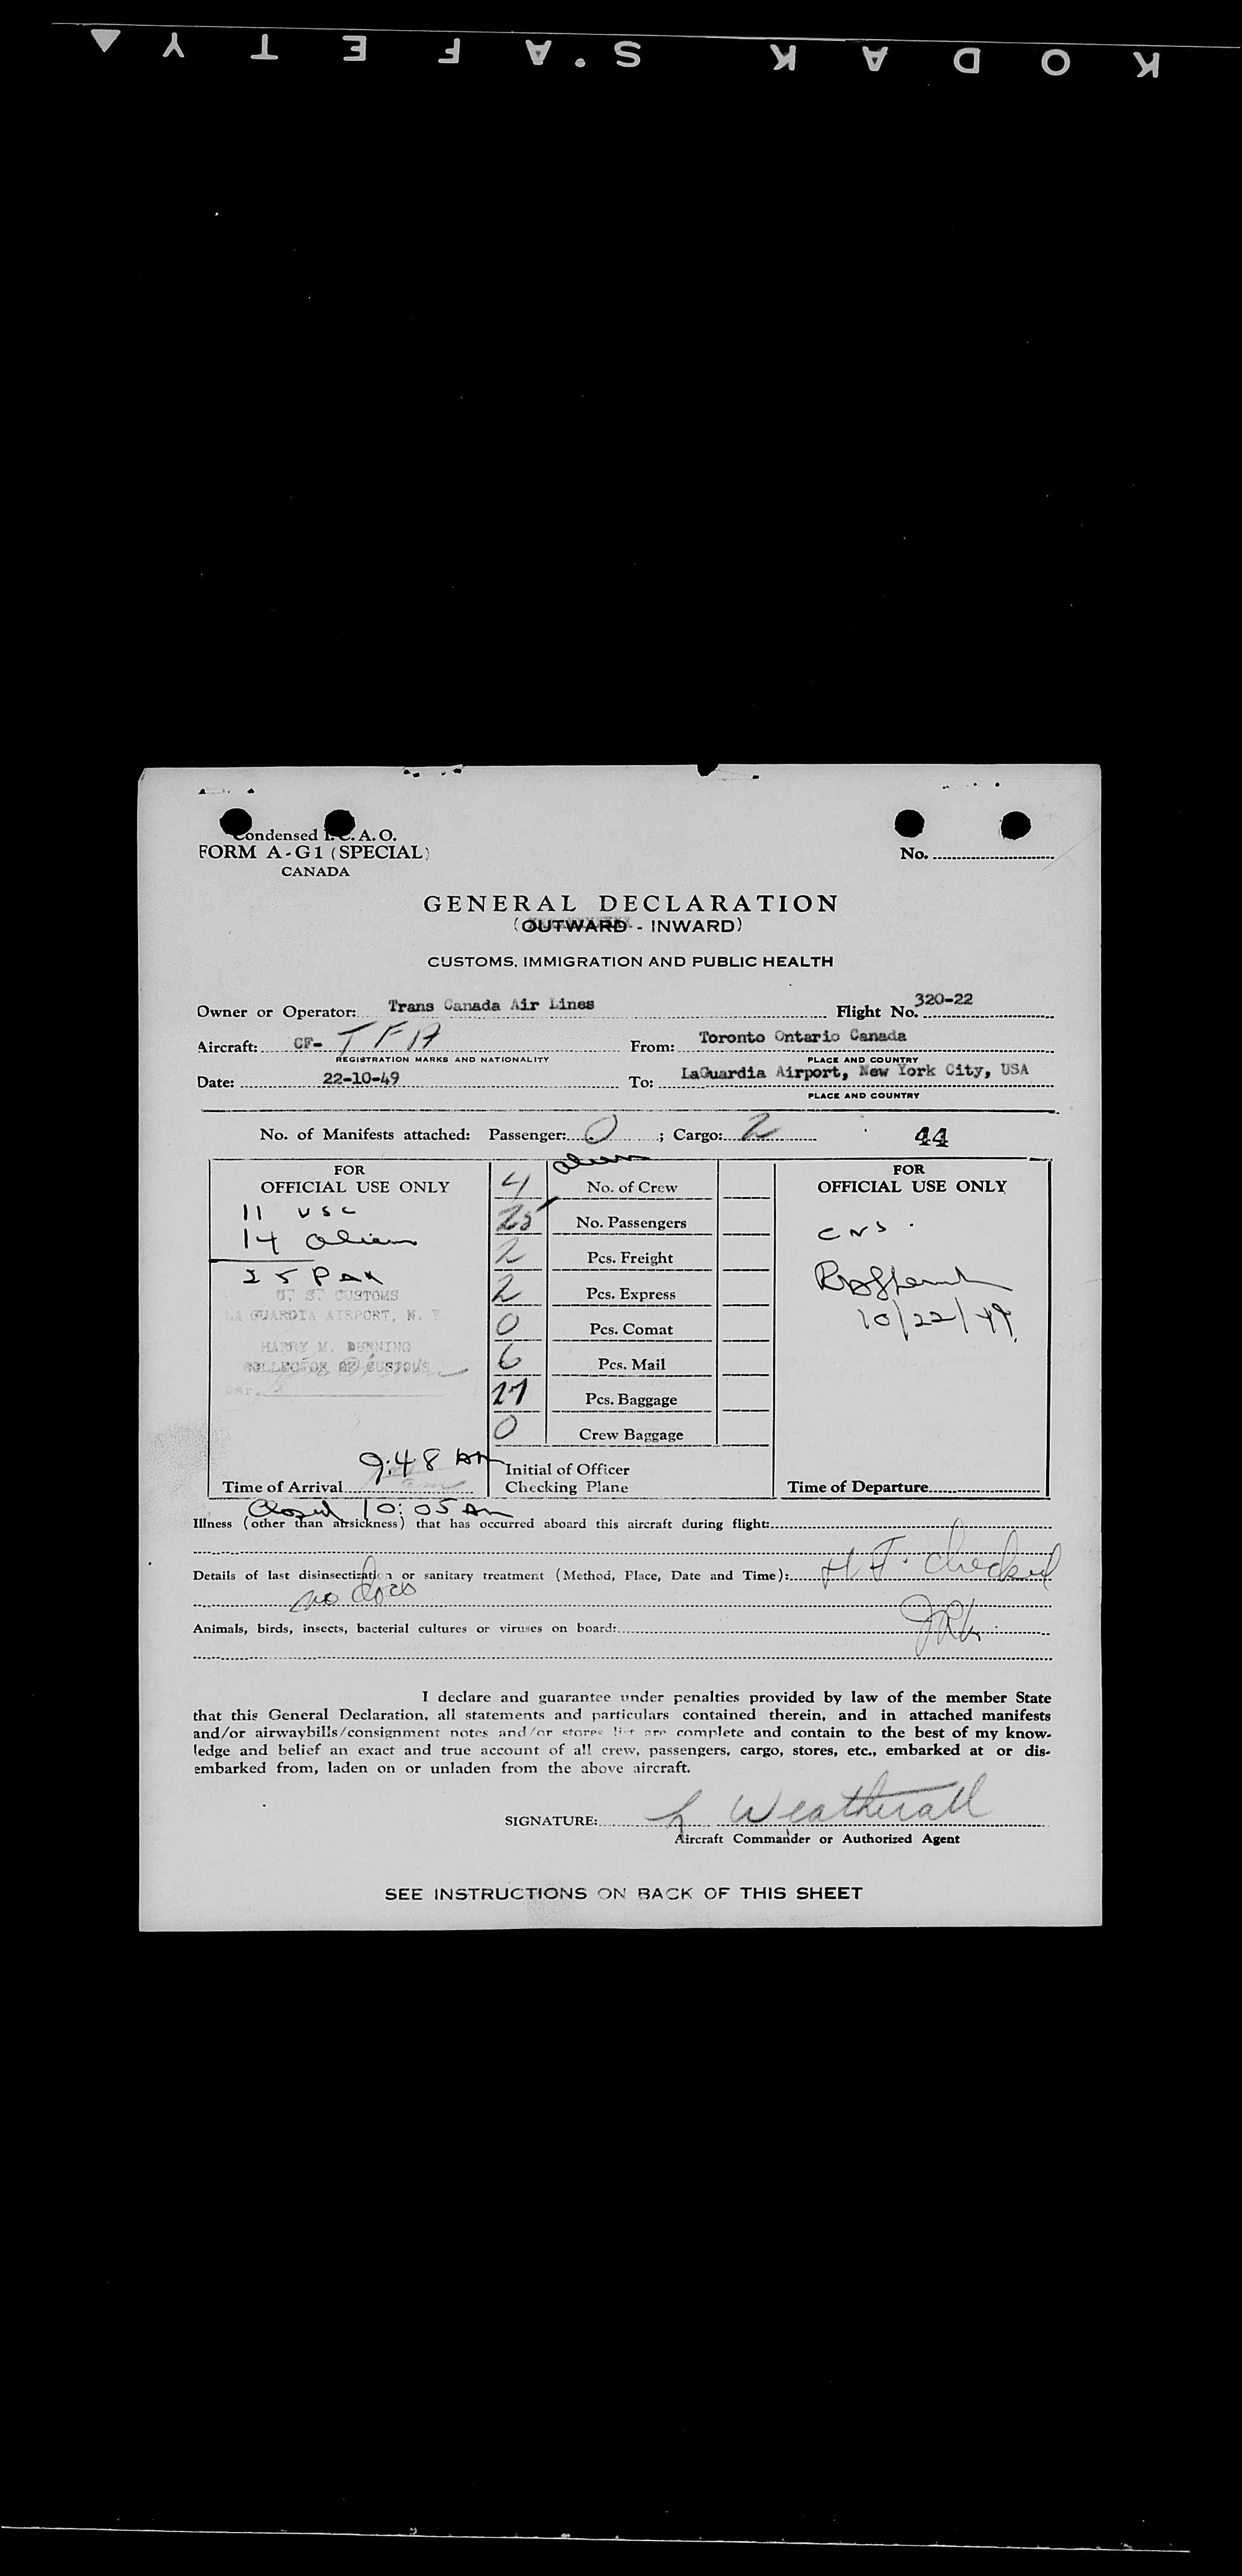 KODAK S.AFETY
Condensed I.C.A.O.
FORM A-G1 (SPECIAL)
CANADA
No.
GENERAL DECLARATION
(OUTWARD - INWARD)
CUSTOMS, IMMIGRATION AND PUBLIC HEALTH
Owner or Operator: Trans Canada Air Lines Flight No. 320-22
Aircraft: CF- TFA From: Toronto Ontario Canada
REGISTRATION MARKS AND NATIONALITY PLACE AND COUNTRY
Date: 22-10-49 To: LaGuardia Airport, New York City, USA
PLACE AND COUNTRY
No. of Manifests attached: Passenger: 0 ; Cargo: 2 44
FOR
OFFICIAL USE ONLY
11 USC
14 alien
25 Pax
U. S. CUSTOMS
LA GUARDIA AIRPORT, N. Y.
HARRY M. DURNING
COLLECTOR OF CUSTOMS
Time of Arrival 9:48 AM
Closed 10:05 AM
alien
4 No. of Crew
25 No. Passengers
2 Pcs. Freight
2 Pcs. Express
0 Pcs. Comat
6 Pcs. Mail
27 Pcs. Baggage
0 Crew Baggage
Initial of Officer
Checking Plane
FOR
OFFICIAL USE ONLY
10/22/49
Time of Departure
Illness (other than airsickness) that has occurred aboard this aircraft during flight:
Details of last disinsectization or sanitary treatment (Method, Place, Date and Time): H.F. checked
no docs
Animals, birds, insects, bacterial cultures or viruses on board:
I declare and guarantee under penalties provided by law of the member State
that this General Declaration, all statements and particulars contained therein, and in attached manifests
and/or airwaybills/consignment notes and/or stores list are complete and contain to the best of my know-
ledge and belief an exact and true account of all crew, passengers, cargo, stores, etc., embarked at or dis-
embarked from, laden on or unladen from the above aircraft.
SIGNATURE: Weatherall
Aircraft Commander or Authorized Agent
SEE INSTRUCTIONS ON BACK OF THIS SHEET